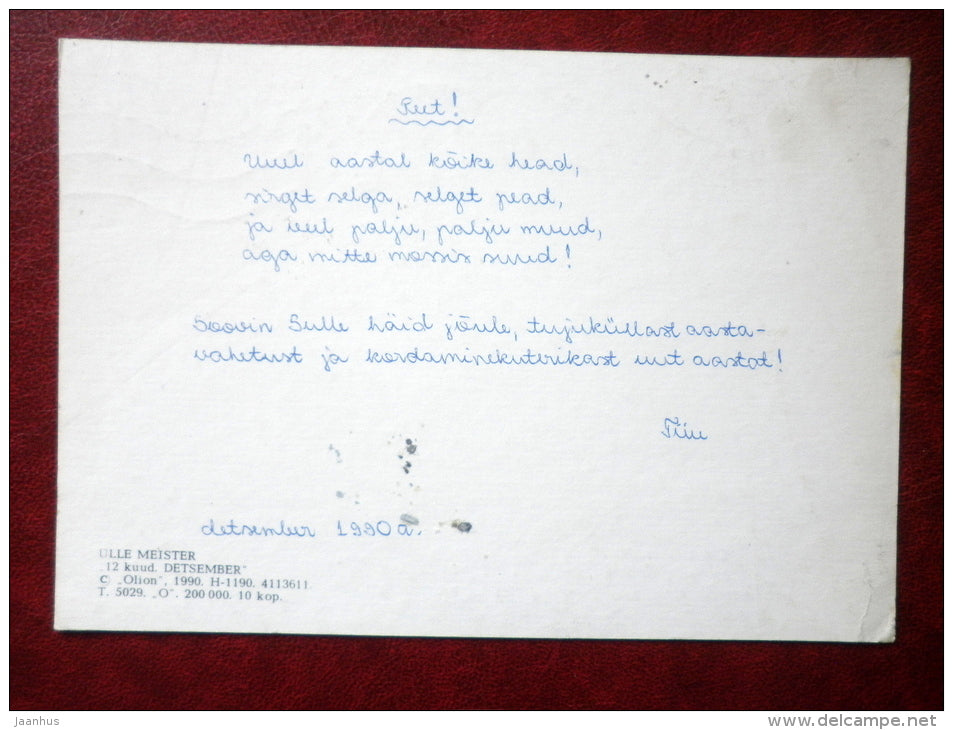 Reet!
Uuel aastal kõike head,
sirget selga, selget pead,
ja veel palju, palju muud,
aga mitte mossis suud!
Soovin Sulle häid jõule, tujuküllast aasta-
vahetust ja kordaminekuterikast uut aastat!
Tiiu
detsember 1990 a.
ÜLLE MEISTER
„12 kuud. DETSEMBER"
© „Olion", 1990. H-1190. 4113611.
T. 5029. „O". 200 000. 10 kop.
Jaanhus
www.delcampe.net